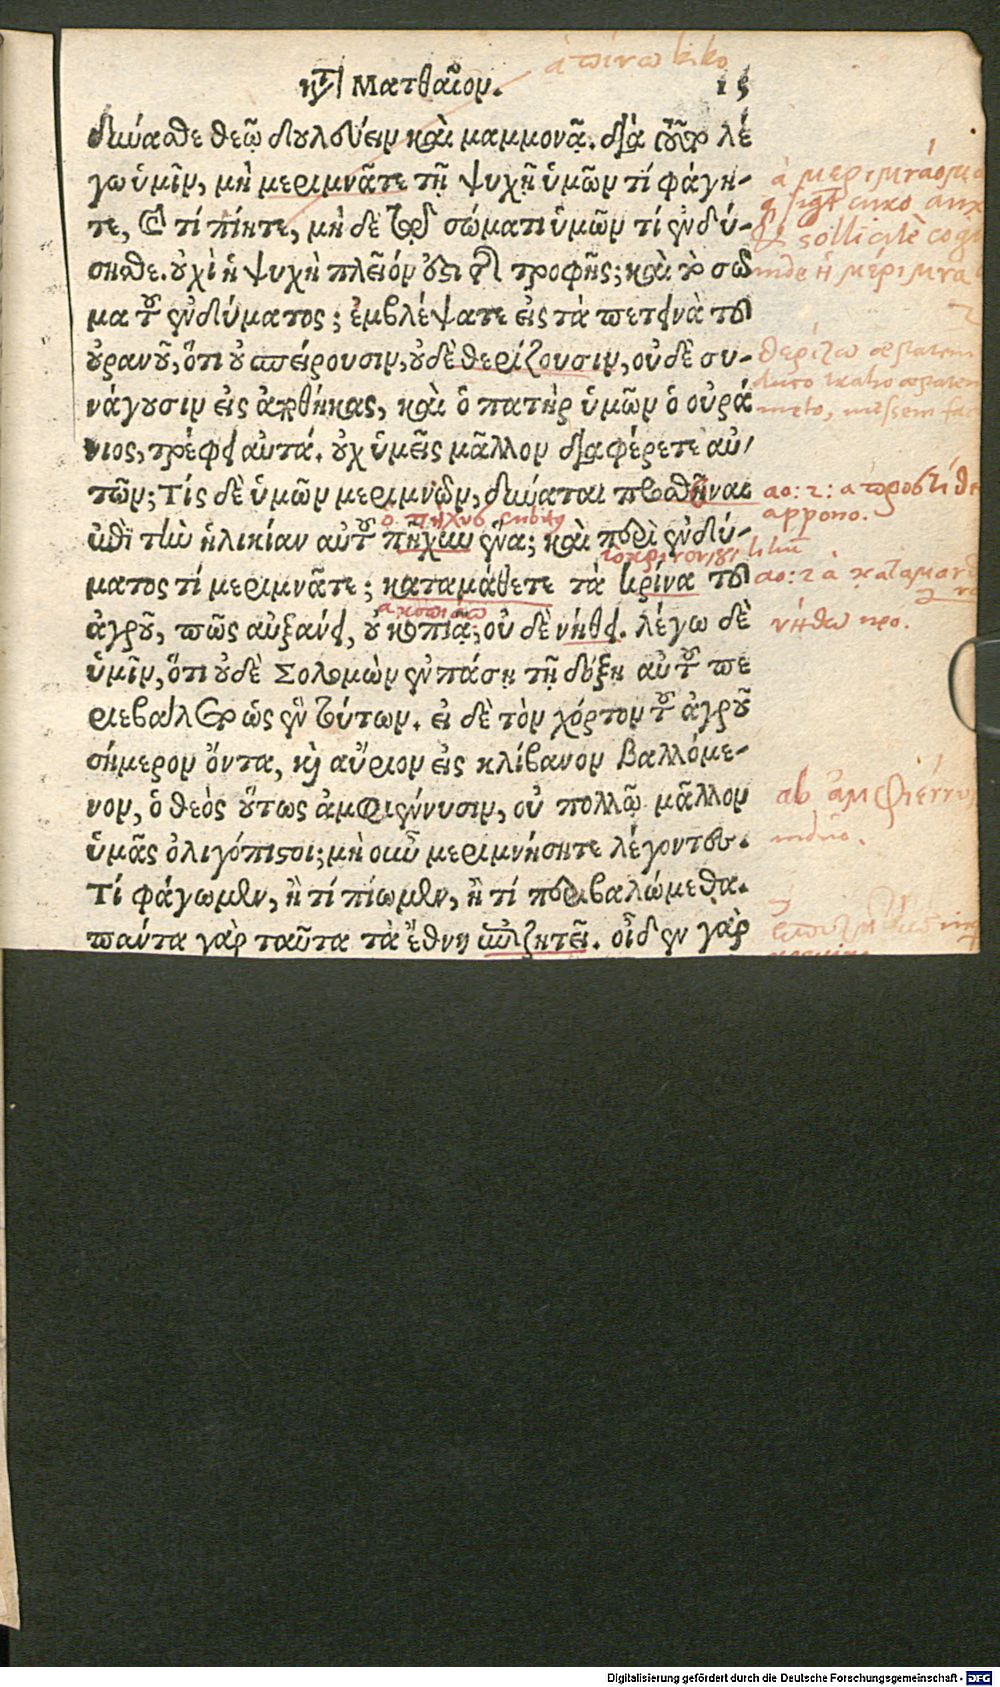 ἀ πίνω bibo
κτ Ματθαῖον. 15
δύνασθε θεῷ δουλεύειν καὶ μαμμονᾷ. διὰ τοῦτο λέ
γω ὑμῖν, μὴ μεριμνᾶτε τῇ ψυχῇ ὑμῶν τί φάγη-
τε, καὶ τί πίητε, μὴ δὲ τῷ σώματι ὑμῶν τί ἐνδύ-
σησθε. οὐχὶ ἡ ψυχὴ πλεῖόν ἐστι τῆς τροφῆς; καὶ τὸ σῶ
μα τοῦ ἐνδύματος; ἐμβλέψατε εἰς τὰ πετεινὰ τοῦ
οὐρανοῦ, ὅτι οὐ σπείρουσιν, οὐδὲ θερίζουσιν, οὐδὲ συ-
νάγουσιν εἰς ἀποθήκας, καὶ ὁ πατὴρ ὑμῶν ὁ οὐρά
νιος, τρέφει αὐτά. οὐχ ὑμεῖς μᾶλλον διαφέρετε αὐ
τῶν; Τίς δὲ ὑμῶν μεριμνῶν, δύναται προσθῆναι
ὁ πῆχυς cubitus
ἐπὶ τὴν ἡλικίαν αὐτοῦ πῆχυν ἕνα; καὶ περὶ ἐνδύ-
τὸ κρίνον, lilium
ματος τί μεριμνᾶτε; καταμάθετε τὰ κρίνα τοῦ
ἀ κοπιάω
ἀγροῦ, πῶς αὐξάνει, οὐ κοπιᾷ, οὐ δὲ νήθει. λέγω δὲ
ὑμῖν, ὅτι οὐδὲ Σολομὼν ἐν πάσῃ τῇ δόξῃ αὐτοῦ πε
ριεβάλετο ὡς ἓν τούτων. εἰ δὲ τὸν χόρτον τοῦ ἀγροῦ
σήμερον ὄντα, καὶ αὔριον εἰς κλίβανον βαλλόμε-
νον, ὁ θεὸς οὕτως ἀμφιέννυσιν, οὐ πολλῷ μᾶλλον
ὑμᾶς ὀλιγόπιστοι; μὴ οὖν μεριμνήσητε λέγοντες.
Τί φάγωμεν, ἢ τί πίωμεν, ἢ τί περιβαλώμεθα.
πάντα γὰρ ταῦτα τὰ ἔθνη ἐπιζητεῖ. οἶδεν γὰρ
ἀ μεριμνάομα
& sollicitè cogi
inde ἡ μέριμνα
θερίζω æstatem
meto, messem fac
ao: 2: ἀ προστίθη
appono.
ao: 2 ἀ καταμανθ
νήθω neo.
ab ἀμφιέννυ
induo.
Digitalisierung gefördert durch die Deutsche Forschungsgemeinschaft - DFG